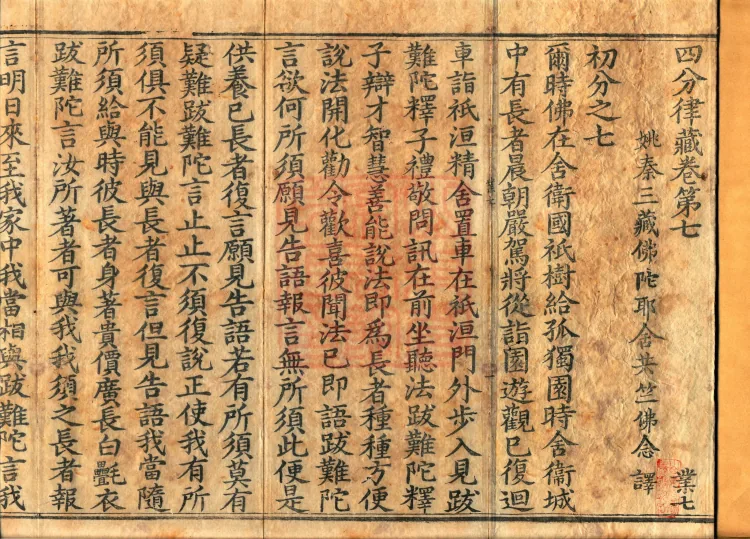 四分律藏卷第七 業七
姚秦三藏佛陀耶舍共竺佛念譯
初分之七
爾時佛在舍衛國祇樹給孤獨園時舍衛城
中有長者晨朝嚴駕將從詣園遊觀已復迴
車詣祇洹精舍置車在祇洹門外步入見跋
難陀釋子禮敬問訊在前坐聽法跋難陀釋
子辯才智慧善能說法即為長者種種方便
說法開化勸令歡喜彼聞法已即語跋難陀
言欲何所須願見告語報言無所須此便是
供養已長者復言願見告語若有所須莫有
疑難跋難陀言止止不須復說正使我有所
須俱不能見與長者復言但見告語我當隨
所須給與時彼長者身著貴價廣長白㲲衣
跋難陀言汝所著者可與我我須之長者報
言明日來至我家中我當相與跋難陀言我